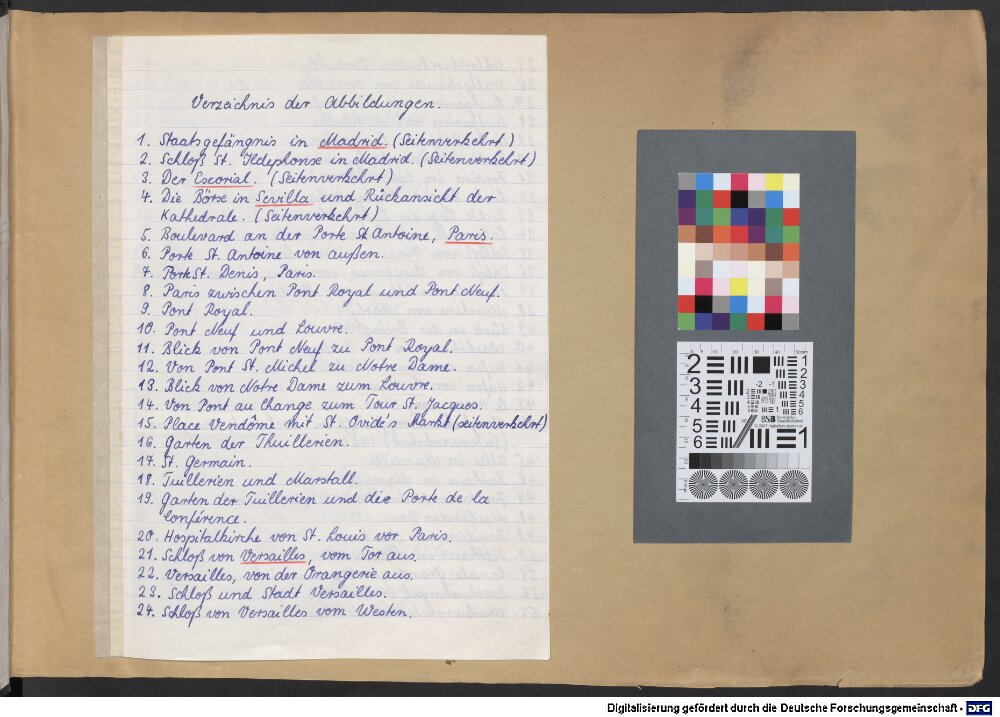 Verzeichnis der Abbildungen.
1. Staatsgefängnis in Madrid. (Seitenverkehrt)
2. Schloß St. Ildephonse in Madrid. (Seitenverkehrt)
3. Der Escorial. (Seitenverkehrt)
4. Die Börse in Sevilla und Rückansicht der
Kathedrale. (Seitenverkehrt)
5. Boulevard an der Porte St Antoine, Paris.
6. Porte St. Antoine von außen.
7. Porte St. Denis, Paris.
8. Paris zwischen Pont Royal und Pont Neuf.
9. Pont Royal.
10. Pont Neuf und Louvre.
11. Blick von Pont Neuf zu Pont Royal.
12. Von Pont St. Michel zu Notre Dame.
13. Blick von Notre Dame zum Louvre.
14. Von Pont au Change zum Tour St. Jacques.
15. Place Vendôme mit St. Ovide's Markt (seitenverkehrt)
16. Garten der Thuillerien.
17. St. Germain.
18. Tuillerien und Marstall.
19. Garten der Tuillerien und die Porte de la
Conférence.
20. Hospitalkirche von St. Louis vor Paris.
21. Schloß von Versailles, vom Tor aus.
22. Versailles, von der Orangerie aus.
23. Schloß und Stadt Versailles.
24. Schloß von Versailles vom Westen.
Digitalisierung gefördert durch die Deutsche Forschungsgemeinschaft - DFG